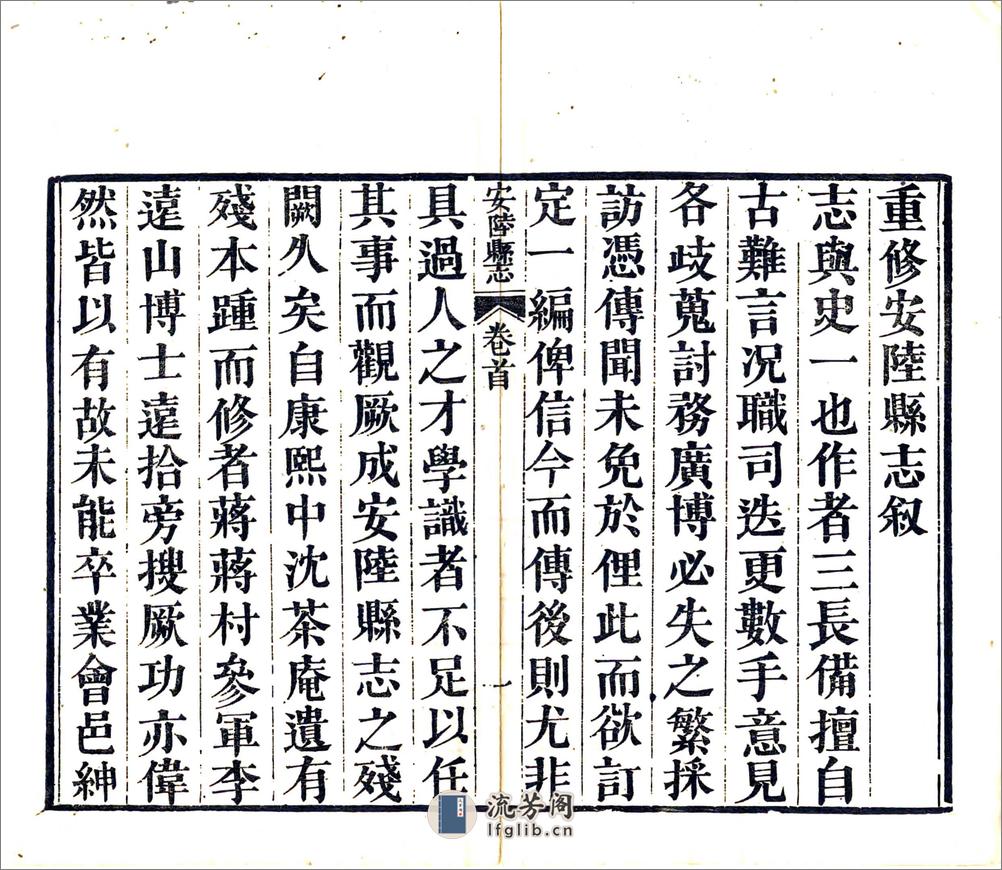 重修安陸縣志叙
志與史一也作者三長備擅自
古難言况職司迭更數手意見
各歧蒐討務廣博必失之繁採
訪憑傳聞未免於俚此而欲訂
定一編俾信今而傳後則尤非
安陸縣志
卷首
一
具過人之才學識者不足以任
其事而觀厥成安陸縣志之殘
闕久矣自康熙中沈茶庵遺有
殘本踵而修者蔣蔣村參軍李
遠山博士遠拾旁搜厥功亦偉
然皆以有故未能卒業會邑紳
流芳阁
lfglib.cn